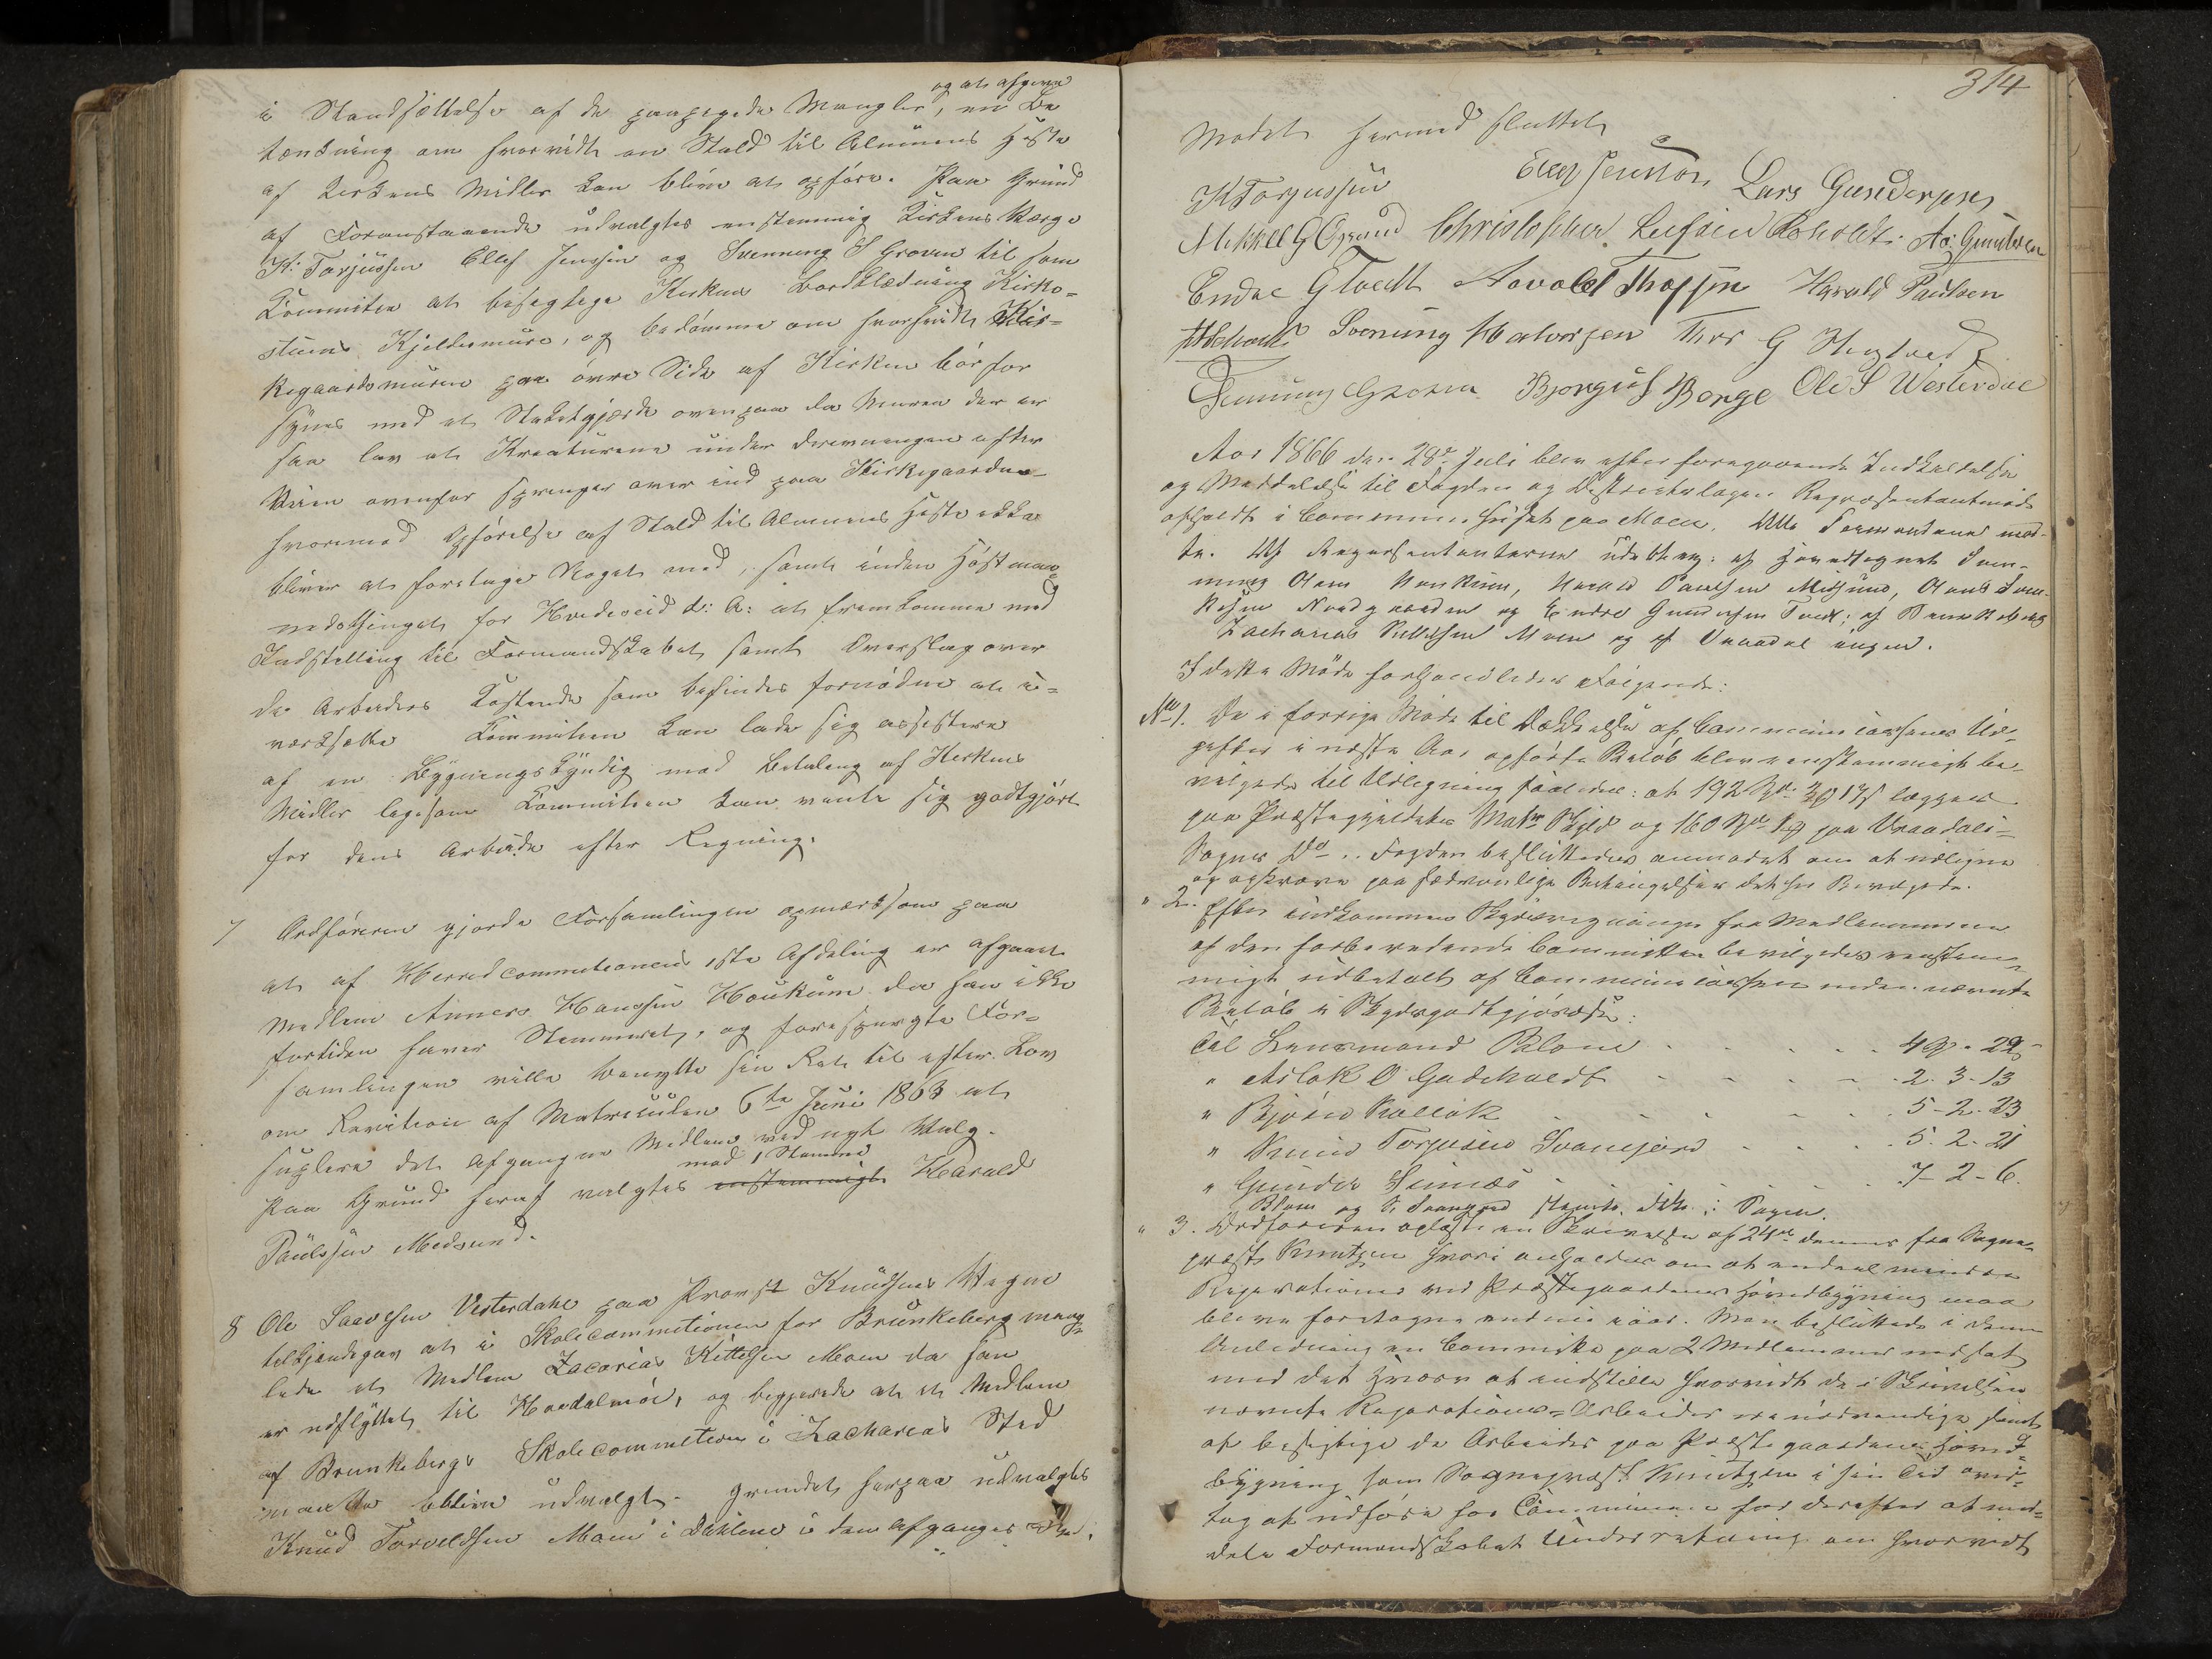 og at afgive
i Standsættelse af de paapegede Mangler, en Be
tænkning om hvorvidt en Stald til Almuens Heste
af Kirkens Midler kan blive at opføre. Paa Grund
af Foranstaaende udvalgtes enstemmig Kirkens Værge
K: Torjussen Ellef Jenssen og Svenning S Groven til som
Committee at besigtige Kirkens Bordklædning Kirke-
stuens Kjeldermure, og bedømme om hvorvidt Kir-
kegaardsmuren paa øvre Side af Kirken bør for
synes med et Staketgjærde ovenpaa da Muren der er
saa lav at Kreaturene under Drivningen efter
Veien ovenfor springer over ind paa Kirkegaarden
hvorimod Opførelse af Stald til Almuens Heste ikke
bliver at foretage Noget med, samt inden Høstman-
nedsthinget for Hvideseid d: A: at fremkomme med
Indstilling til Formandskabet samt Overslag over
de Arbeiders Kostende som befindes fornødne at i-
værksætte Committeen kan lade sig assistere
af en Bygningskyndig mod Betaling af Kirkens
Midler ligesom Committeen kan vente sig godtgjort
for dens Arbeide efter Regning.
7 Ordføreren gjorde Forsamlingen opmærksom paa
at af Herredcommitionens 1ste Afdeling er afgaaet
Medlem Anners Hansen Haukum da han ikke
fortiden haver Stemmeret, og forespurgte For-
samlingen ville benytte sin Ret til efter Lov
om Revition af Matriculen 6te Juni 1863 at
suplere det Afgangne Medlem ved nyt Valg.
med 1 Stemme
Paa Grund heraf valgtes enstemmigt Harald
Paulssen Midsund.
8 Ole Saavesen Vesterdahl paa Provst Knudsens Vegne
tilkjendegav at i Skolecommitionen for Brunkeberg mang-
lede et Medlem Zacarias Kittelsen Moen da han
er udflyttet til Hvedalmoe, og begjerede at et Medlem
af Brunkebergs Skolecommition i Zacharias Sted
maatte blive udvalgt. Grundet herpaa udvalgtes
Knud Torveldsen Moen i Dahlene i den Afganges Sted.
314
Mødet hermed sluttet
K Torjussen Ellef Jensson Lars Gundersen
Mikkel G Opsund Christopher Leifsen Roholdt. As: Gundersen
Endre G Tvedt Aavold Thorsen Harald Paulsen
Svenung Halvorsen Thor G Haatvedt
Svenung Groven Bjorguf Berge Ole S Westerdal
Aar 1866 den 28de Juli blev efter foregaaende Indkaldelse
og Meddelelse til Fogden og Districtslægen Repræsentantmøde
afholdt i Communehuset paa Moen. Alle Formændene mød-
te. Af Repræsentanterne udebleve: af Hovedsognet Sven-
nung Olsen Haukum, Harald Paulsen Midsund, Hans Sven-
kesen Nordgaarden og Endre Gundersen Tvedt; af Brunkeberg
Zacharias Kittelsen Moen og af Vraadal ingen.
I dette Møde forhandledes Følgende:
No 1. De i forrige Møde til Dækkelse af Communecassens Ud-
gifter i næste Aar opførte Beløb blev eenstemmigt be-
vilgede til Udligning saaledes: at 192 Spd. 2 17s lægges
paa Præstegjeldets Matr Skyld og 160 Spd 1 paa Vraadals-
Sogns Do. Fogden besluttedes anmodet om at udligne
og opkræve paa sædvanlige Betingelser det her Bevilgede.
" 2. Efter indkommen Skydsregninger fra Medlemmerne
af den forberedende Committee bevilgedes eenstem-
migt udbetalt af Communecassen neden nævnte
Beløb i Skydsgodtgjørelse:
Til Lensmand Blom - - - 4 . 22
" Aslak O Gadeholdt - - - 2. 3. 13
" Bjørn Kallak - - - 5 - 2. 23
" Knud Torjusen Svanejord - - - 5. 2. 21
" Gunder Simæs - - - 7 - 2 - 6.
Blom og K. Svanejord stemte ikke i Sagen.
" 3. Ordføreren oplæste en Skrivelse af 24de dennes fra Sogne-
præst Knutzen hvori anholdes om at endeel mindre
Reparationer ved Præstegaardens Hovedbygning maa
blive foretagne endnu iaar. Man besluttede i denne
Anledning en Committe paa 2 Medlemmer nedsat
med det Hverv at indstille hvorvidt de i Skrivelsen
nævnte Reparations-Arbeider ere nødvendige samt
at besigtige de Arbeider paa Præstegaardens Hoved-
bygning som Sogneprest Knutzen i sin Tid over-
tog at udføre for Communen for derefter at med-
dele Formandskabet Underretning om hvorvidt